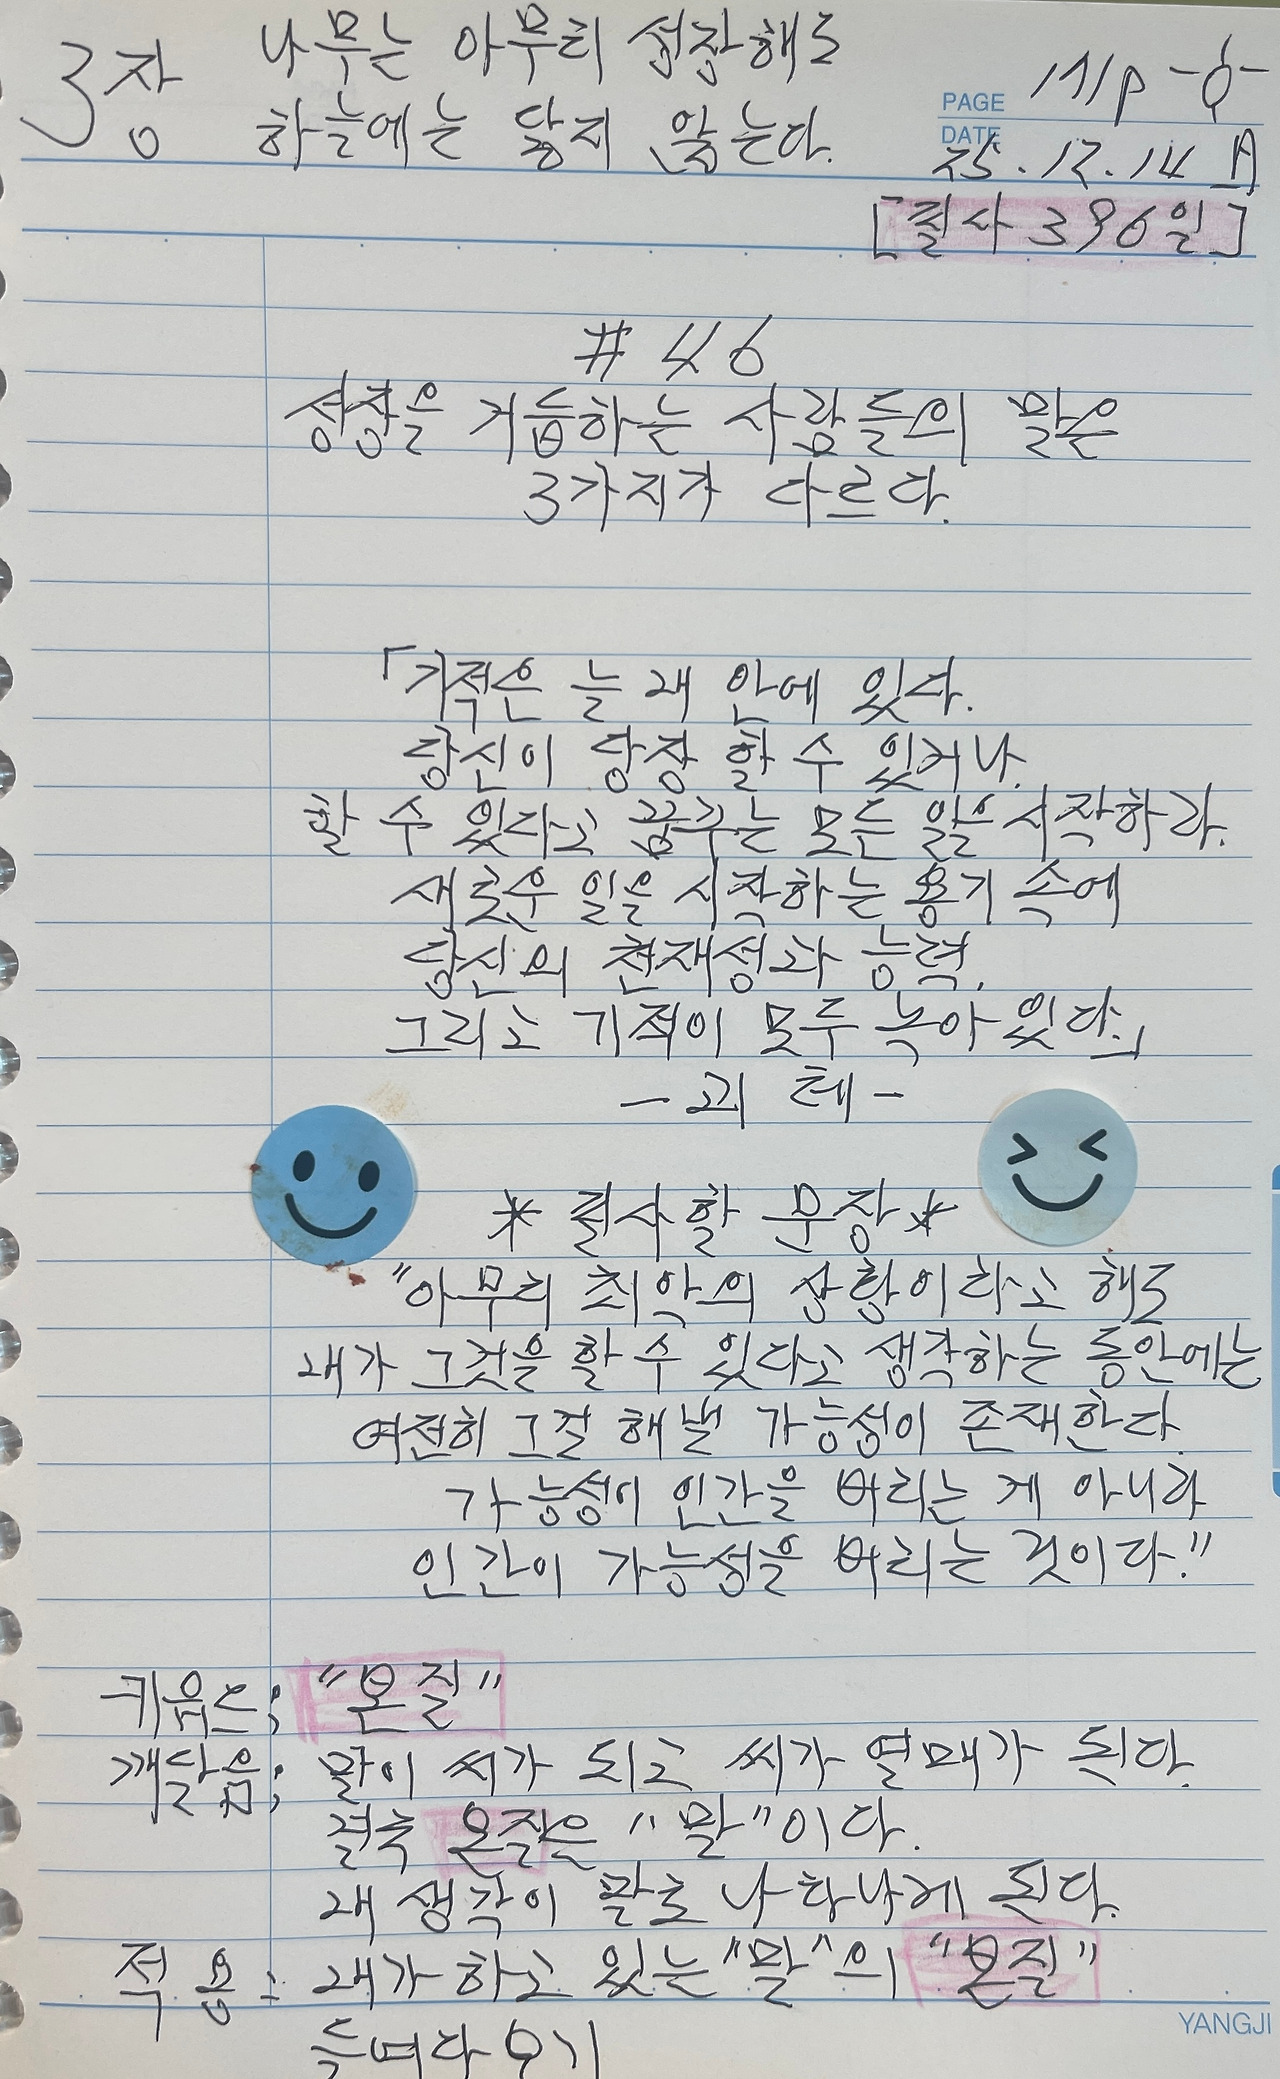 3장 나무는 아무리 성장해도
하늘에는 닿지 않는다.
PAGE 171p
DATE 25.12.14
[필사 396일]
#46
성장을 거듭하는 사람들의 말은
3가지가 다르다.
「기적은 늘 내 안에 있다.
당신이 당장 할 수 있거나,
할 수 있다고 꿈꾸는 모든 일을 시작하라.
새로운 일을 시작하는 용기 속에
당신의 천재성과 능력,
그리고 기적이 모두 녹아 있다.」
-괴테-
*필사할 문장*
"아무리 최악의 상황이라고 해도
내가 그것을 할 수 있다고 생각하는 동안에는
여전히 그걸 해낼 가능성이 존재한다.
가능성이 인간을 버리는 게 아니라
인간이 가능성을 버리는 것이다."
키워드; "본질"
깨달음; 말이 씨가 되고 씨가 열매가 된다.
결국 본질은 "말"이다.
내 생각이 말로 나타나게 된다.
적용: 내가 하고 있는 "말"의 "본질"
들여다 보기
YANGJI